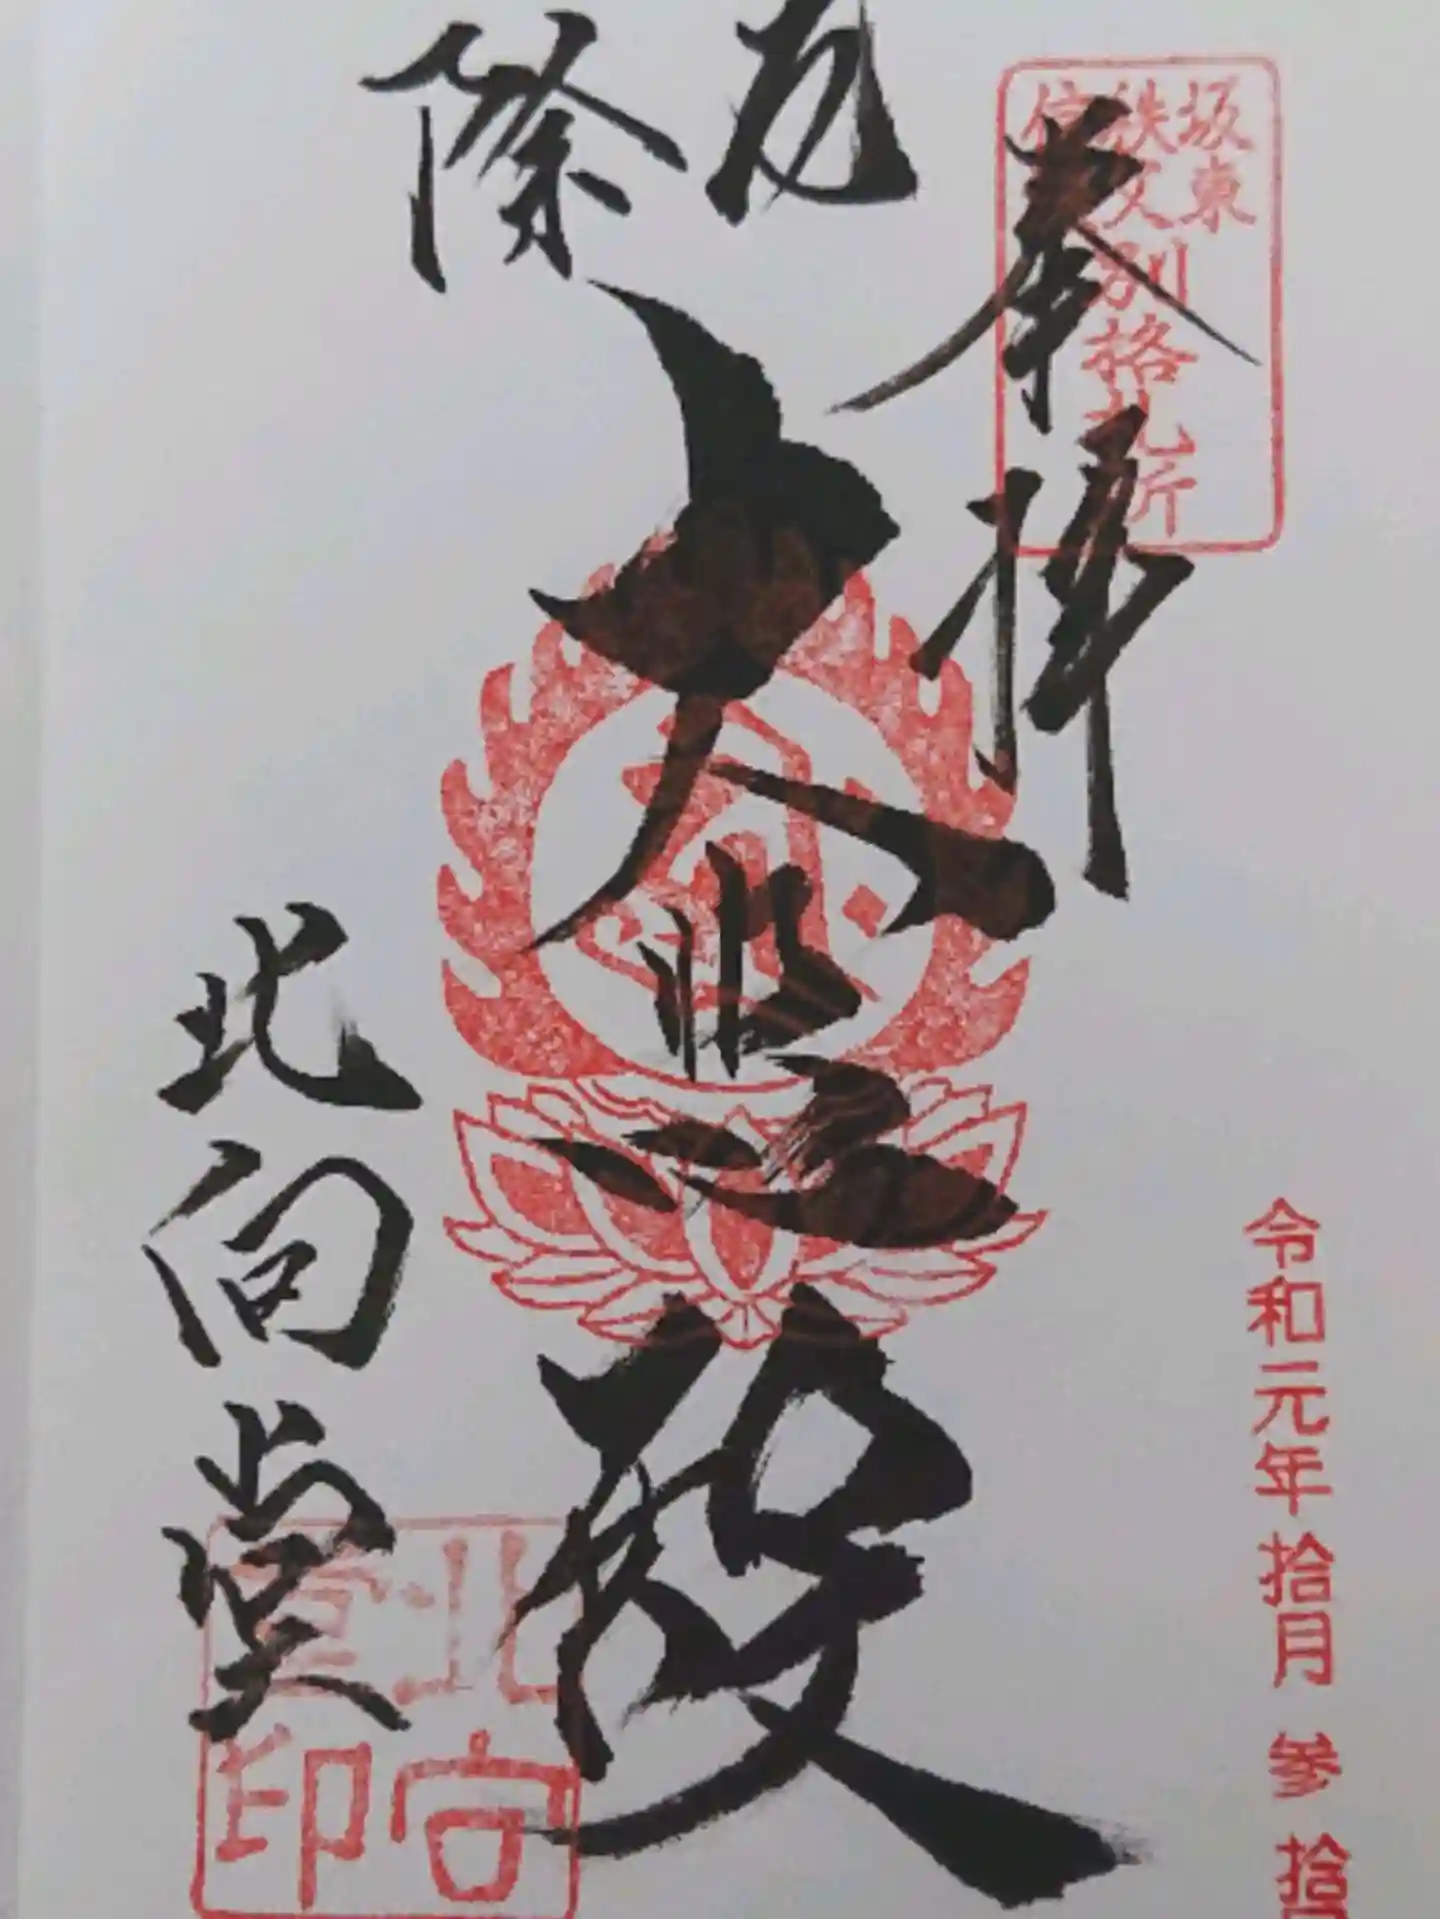 坂東
秩父
別格札所
奉拝
厄
除
大悲殿
北向堂
北向
堂印
令和元年拾月参拾